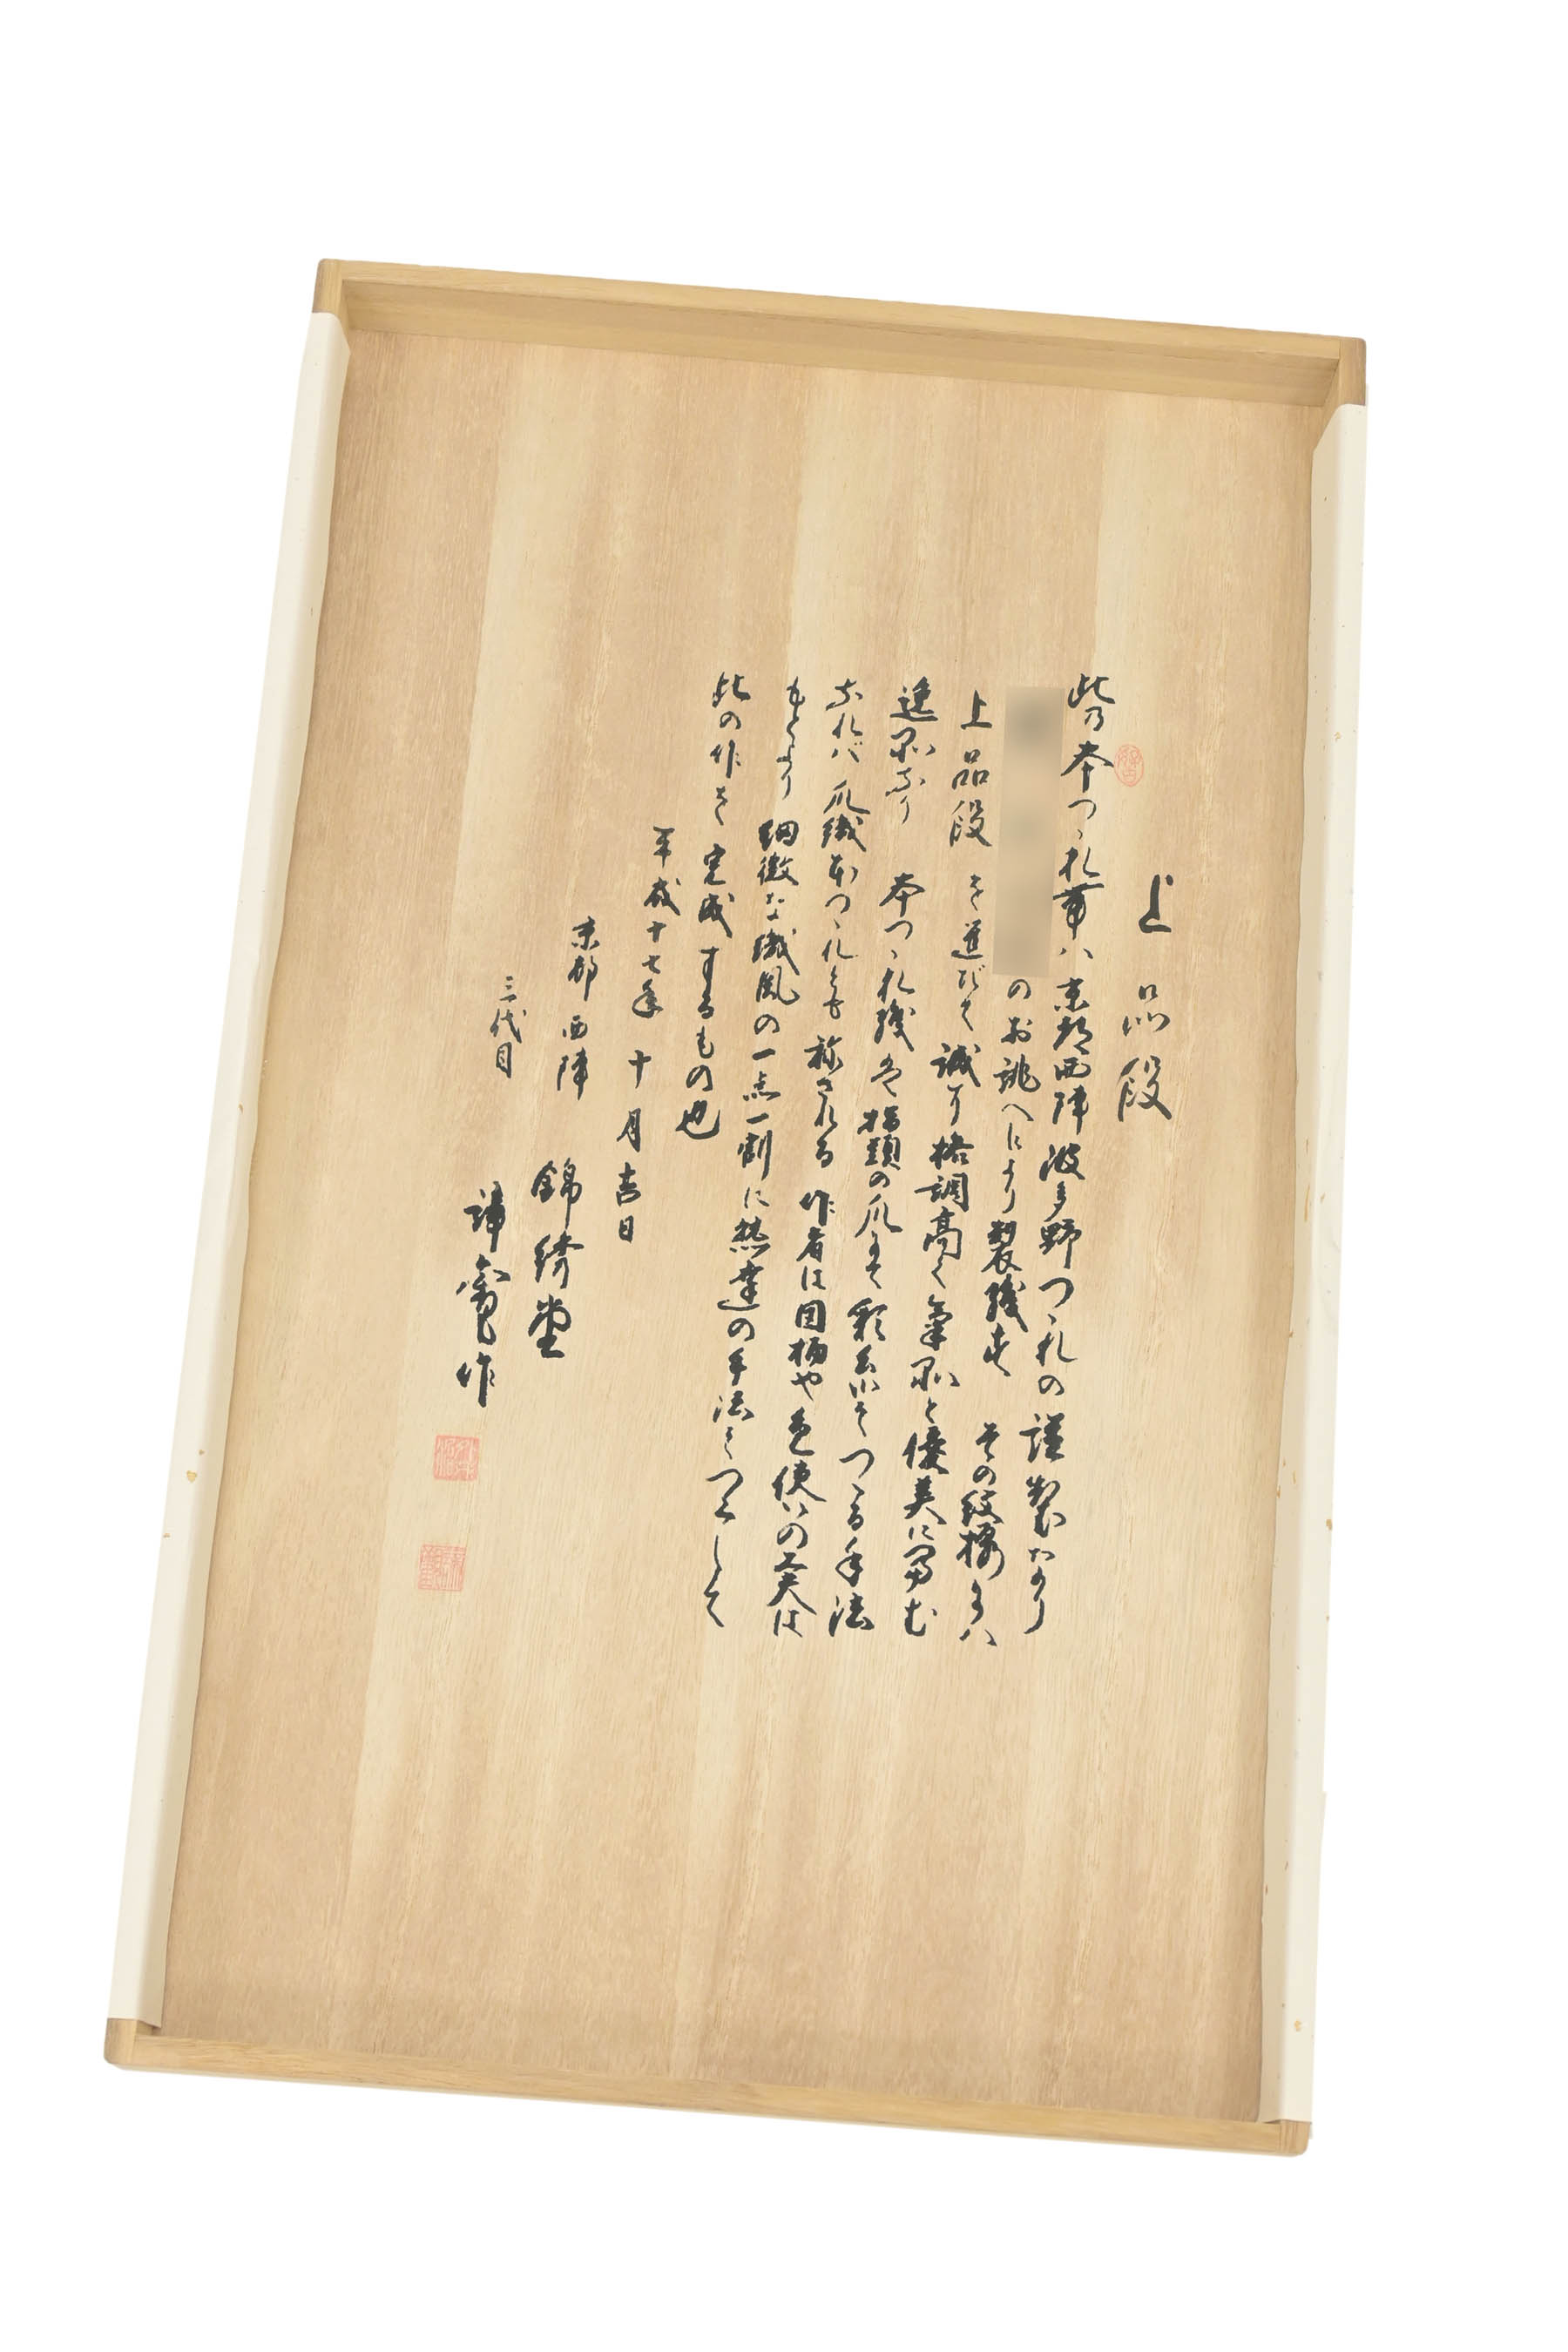 上品段
此乃本つゝれ帯ハ京都西陣波多野つゝれの謹製なり
のお誂へにより製織す その紋様名ハ
上品段を選びて誠に格調高く気品と優美に富む
逸品なり 本つゝれ織は指頭の爪にて彩糸にてつゝる手法
なれバ爪織本つゝれとも称される 作者は図柄や色使いの工夫は
もとより細微な織風の一点一劃に熟達の手法をつくして
此の作を完成するもの也
平成十七年十月吉日
京都西陣 錦綉堂
三代目 作